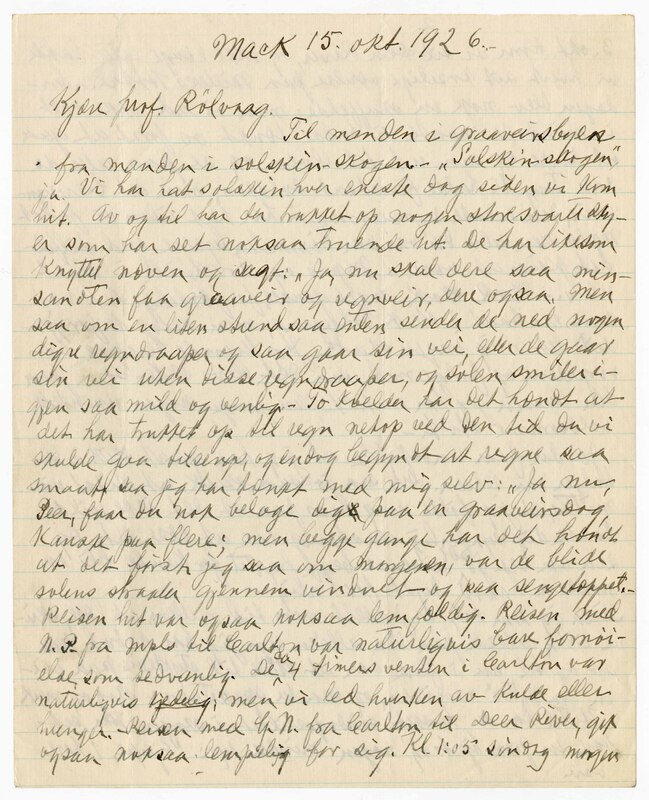 Mack 15. okt. 1926.-
Kjære prof. Rölvaag.
Til manden i graaveirsbyen
fra manden i solskin-skogen.- "Solskin-skogen"
ja. Vi har hat solskin hver eneste dag siden vi kom
hit. Av og til har da trukket op nogen store svarte sky-
er som har set noksaa truende ut. De har likesom
knyttet næven og sagt: "Ja, nu skal dere saa min-
santen faa graaveir og regnveir, dere ogsaa. Men
saa om en liten stund saa enten sender de ned nogen
digre regndraaper og saa gaar sin vei, eller de gaar
sin vei uten disse regndraaper, og solen smiler i-
gjen saa mild og venlig.- To kvelder har det hændt at
det har trukket op til regn netop ved den tid da vi
skulde gaa tilsengs, og endog begyndt at regne saa
smaat, saa jeg har tænkt med mig selv: "Ja nu,
Peer, faar du nok belage dig paa en graaveirsdag
kanske paa flere; men begge gange har det hændt
at det först jeg saa om morgenen, var de blide
solens straaler gjennem vinduet og paa sengeteppet.-
Reisen hit var ogsaa noksaa lemfældig. Reisen med
N. P. fra mpls til Carlton var naturligvis bare fornöi-
else som sedvanlig. De ca 4 timers venten i Carlton var
naturligvis kjedelig; men vi led hverken av kulde eller
hunger.- Reisen med G. N. fra Carlton til Deer River, gik
ogsaa noksaa lempelig for sig. Kl. 1:05 söndag morgen